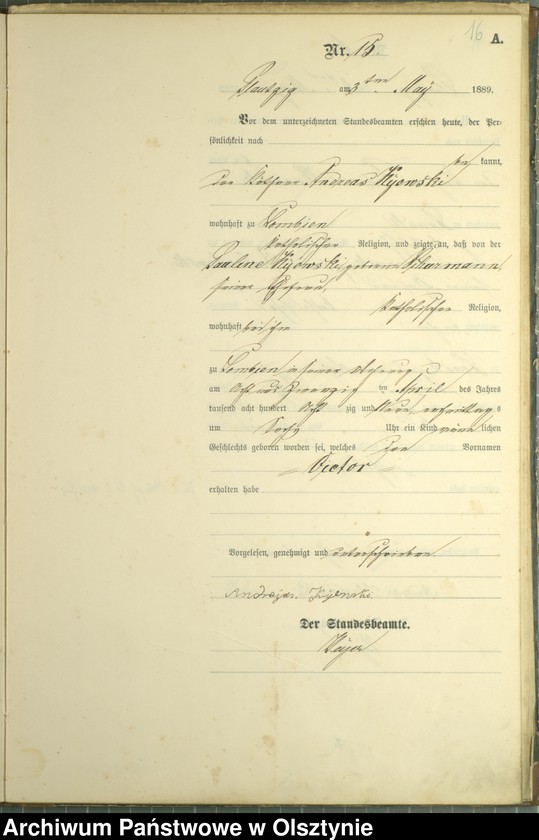 16 A.
Nr. 15
Plautzig am 3ten May 1889.
Vor dem unterzeichneten Standesbeamten erschien heute, der Per-
sönlichkeit nach
be kannt,
der Käthner Andreas Kijewski
wohnhaft zu Lombien
katholischer Religion, und zeigte an, daß von der
Pauline Kijewski, geborene
seiner Ehefrau,
katholischer Religion,
wohnhaft bei ihm
zu Lombien in seiner Wohnung
am Acht und zwanzig ten April des Jahres
tausend acht hundert Acht zig und Neun, Vormittags
um Sechs Uhr ein Kind männ lichen
Geschlechts geboren worden sei, welches den Vornamen
Victor
erhalten habe
Vorgelesen, genehmigt und unterschrieben
Andrejas Kijewski
Der Standesbeamte.
Archiwum Państwowe w Olsztynie